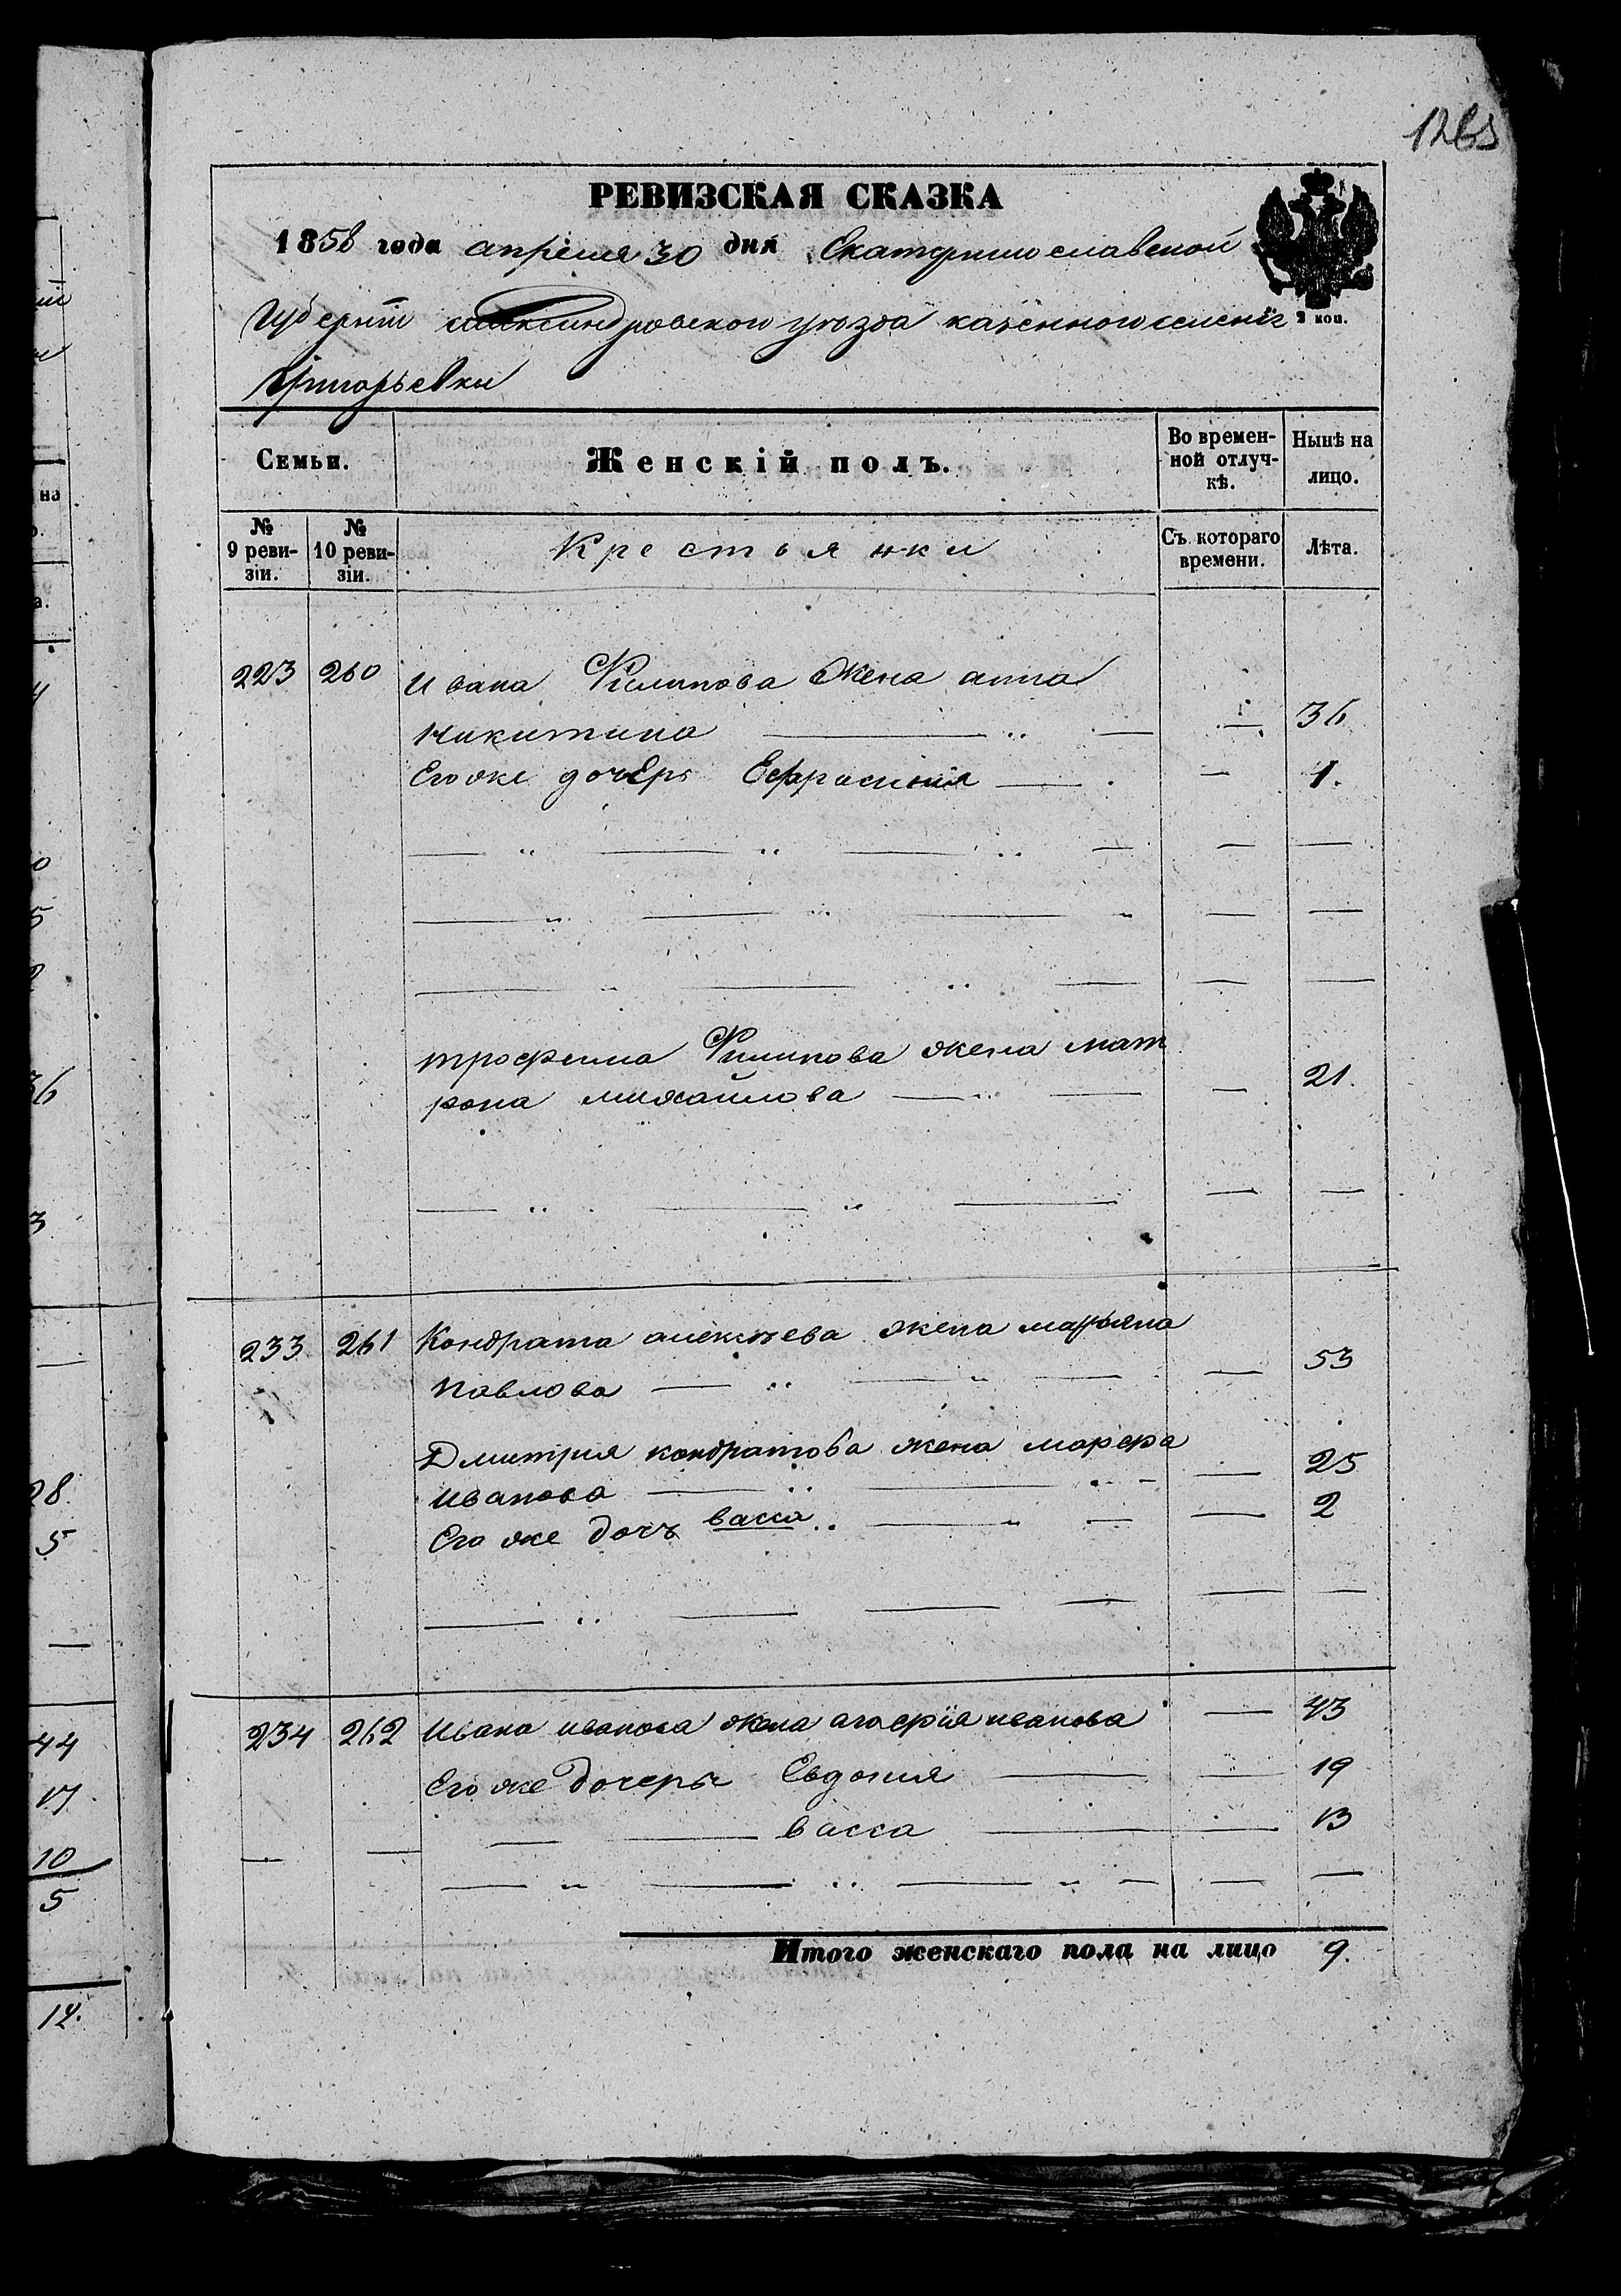 1265
РЕВИЗСКАЯ СКАЗКА
1858 года апреля 30 дня Екатеринославской
Губернiи александровского уѣзда казенного селенiя
2 коп.
Григорьевки
Семьи.
Женскiй полъ.
Во времен-
ной отлуч-
кѣ.
Нынѣ на
лицо.
№
9 реви-
зiи.
№
10 реви-
зiи.
Крестьянки
Съ котораго
времени.
Лѣта.
223 260 Ивана Филипова жена анна
никитина 36
Его же дочерь Ефросинiя 1.
трофима Филипова жена мат
рона михайлова 21.
233 261 Кондрата алексѣева жена марьяна
павлова 53
Дмитрия кондратова жена марфа
иванова 25
Его же дочь васса 2
234 262 Ивана иванова жена агафiя иванова 43
Его же дочерьи Евдокия 19
васса 13
Итого женскаго пола на лицо 9.
на
36
28
5
44
17
10
5
14.